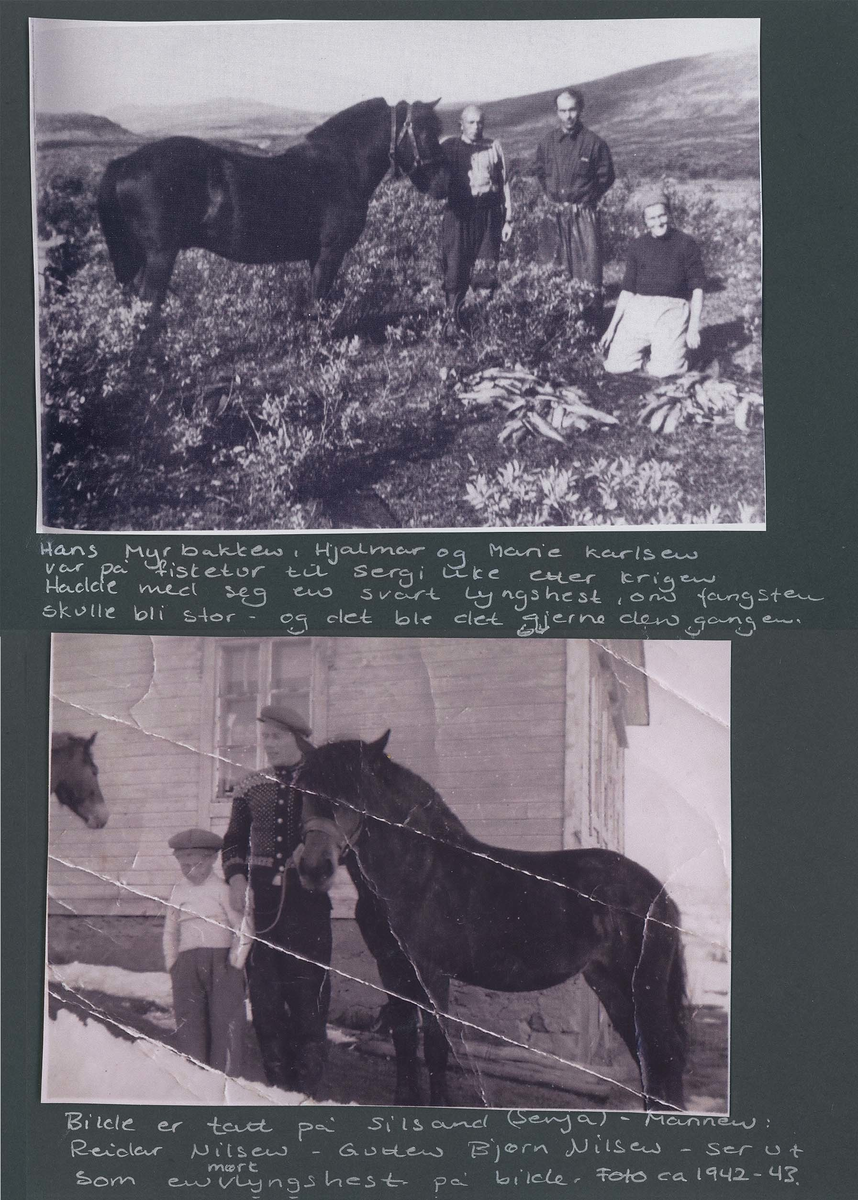 Hans Myrbakken, Hjalmar og Marie Karlsen
var på fisketur til Sergi like etter krigen
Hadde med seg en svart Lyngshest, om fangsten
skulle bli stor - og det ble det gjerne den gangen.
Bilde er tatt på Silsand (Senja) - Mannen:
Reidar Nilsen - Gutten Bjørn Nilsen - Ser ut
som en mørk lyngshest på bilde. Foto ca 1942-43.